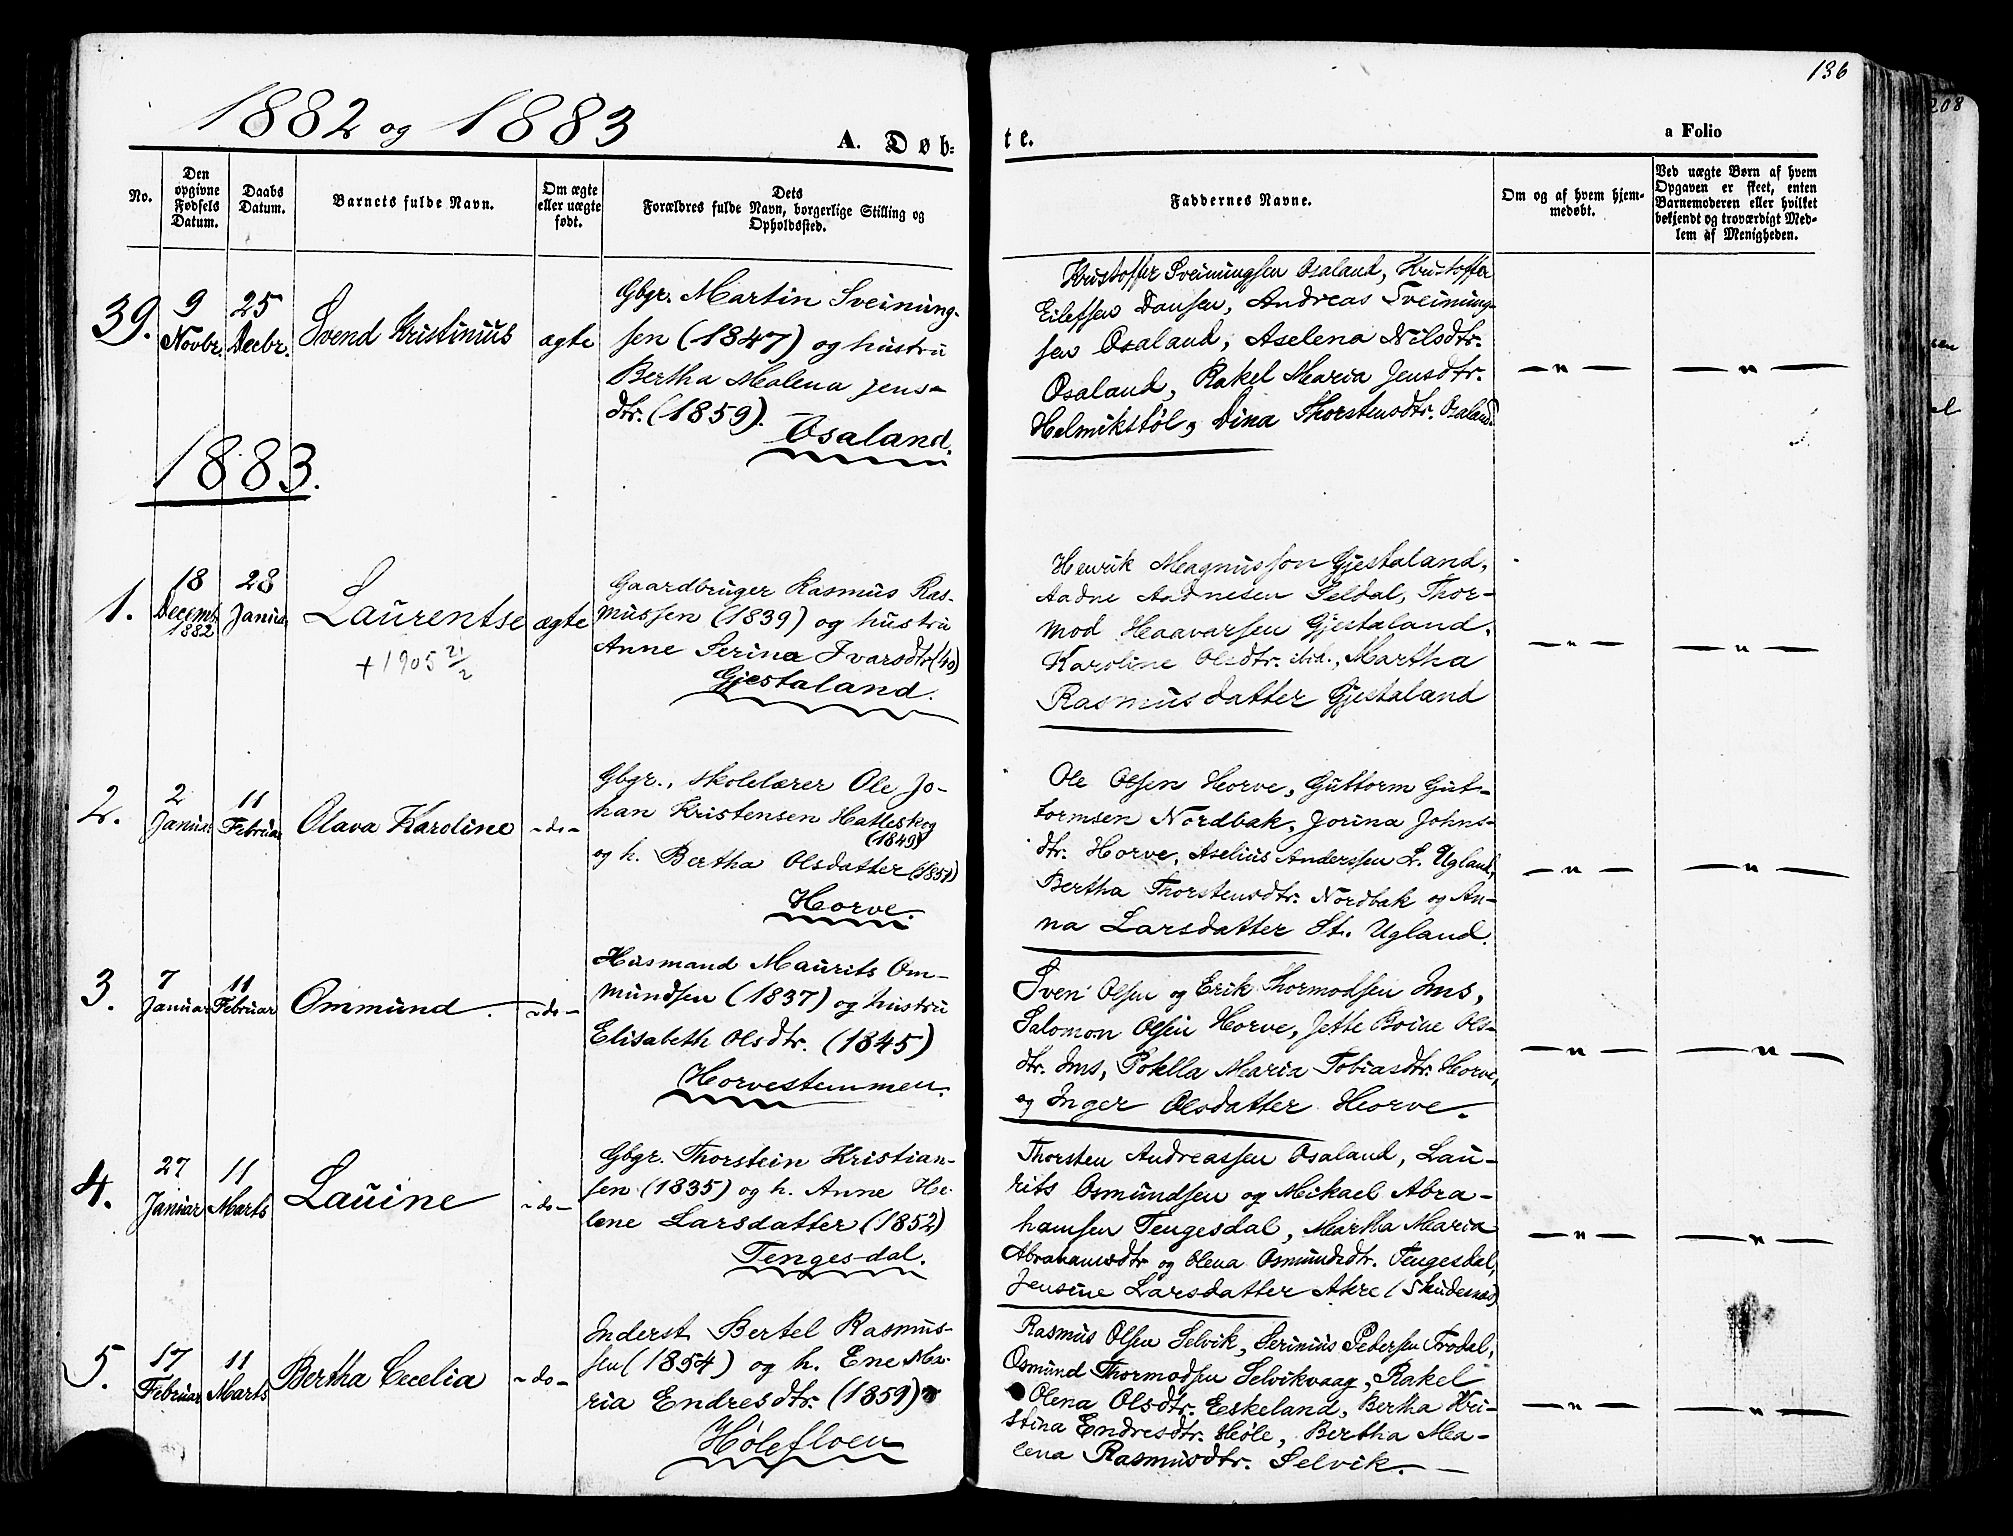 136
208
1882 og 1883
A. Døb-
te.
a Folio
No.
Den opgivne Fødsels Datum.
Daabs Datum.
Barnets fulde Navn.
Om ægte eller uægte født.
Dets Forældres fulde Navn, borgerlige Stilling og Opholdssted.
Faddernes Navne.
Om og af hvem hjemmedøbt.
Ved uægte Børn af hvem Opgaven er skeet, enten Barnemoderen eller hvilket bekjendt og troværdigt Medlem af Menigheden.
39.
9 Novbr.
25 Decbr.
Svend Kristinius
ægte
Gbgr. Martin Sveinung-
sen (1847) og hustru
Bertha Malena Jens-
dtr. (1859).
Osaland.
Kristoffer Sveinungsen Osaland, Kristoffer
Eilefsen Dansen, Andreas Sveinung-
sen Osaland, Aselena Nilsdtr.
Osaland, Rakel Maria Jensdtr.
Helmikstøl, Dina Thorstensdtr. Osaland
— " —
— " —
1883.
1.
18 Decemb. 1882
28 Janua
Laurentse
+ 1905 21/2
ægte
Gaardbruger Rasmus Ras-
mussen (1839) og hustru
Anne Serine Ivarsdtr (40)
Gjestaland.
Henrik Magnusson Gjestaland,
Aadne Aadnesen Seldal, Thor-
mod Haavarsen Gjestaland.
Karoline Olsdtr. ibid., Martha
Rasmusdatter Gjestaland
— " —
— " —
2.
2 Januar
11 Februar
Olava Karoline
- do -
Gbgr., skolelærer Ole Jo-
han Kristensen Hatleskog
(1849)
og h. Bertha Olsdatter (1851)
Horve.
Ole Olsen Horve, Guttorm Gut-
tormsen Nordbak, Jorina Johns-
dtr. Horve, Aselius Anderssen L. Ugland,
Bertha Thorstensdtr. Nordbak og An-
na Larsdatter St. Ugland.
— " —
— " —
3.
7 Januar
11 Februar
Ommund.
- do -
Husmand Maurits Om-
mundsen (1837) og hustru
Elisabeth Olsdtr. (1845)
Horvestemmen.
Sven Olsen og Erik Thormodsen Ims,
Salomon Olsen Horve, Jette Boine Ols-
dtr. Ims, Maria Tobiasdtr. Horve,
og Inger Olsdatter Horve.
— " —
— " —
4.
27 Januar
11 Marts
Lauine
- do -
Gbgr. Thorstein Kristian-
sen (1835) og h. Anne He-
lene Larsdatter (1852)
Tengesdal.
Thorsten Andreassen Osaland, Lau-
rits Osmundsen og Mikael Abra-
hamsen Tengesdal, Martha Maria
Abrahamsdtr og Olena Osmundsdtr. Tengesdal,
Jensine Larsdatter Akre (Skudesnæs)
— " —
— " —
5.
17 Februar
11 Marts
Bertha Cecelia
- do -
Inderst Bertel Rasmus-
sen (1854) og h. Ene Ma-
ria Endresdtr. (1859)
Hølefloen
Rasmus Olsen Selvik, Serinius Pedersen Frodal,
Osmund Thormodsen Selvikvaag, Rakel
Olena Olsdtr. Eskeland, Bertha Kri-
stina Endresdtr. Høle, Bertha Ma-
lena Rasmusdtr. Selvik.
— " —
— " —